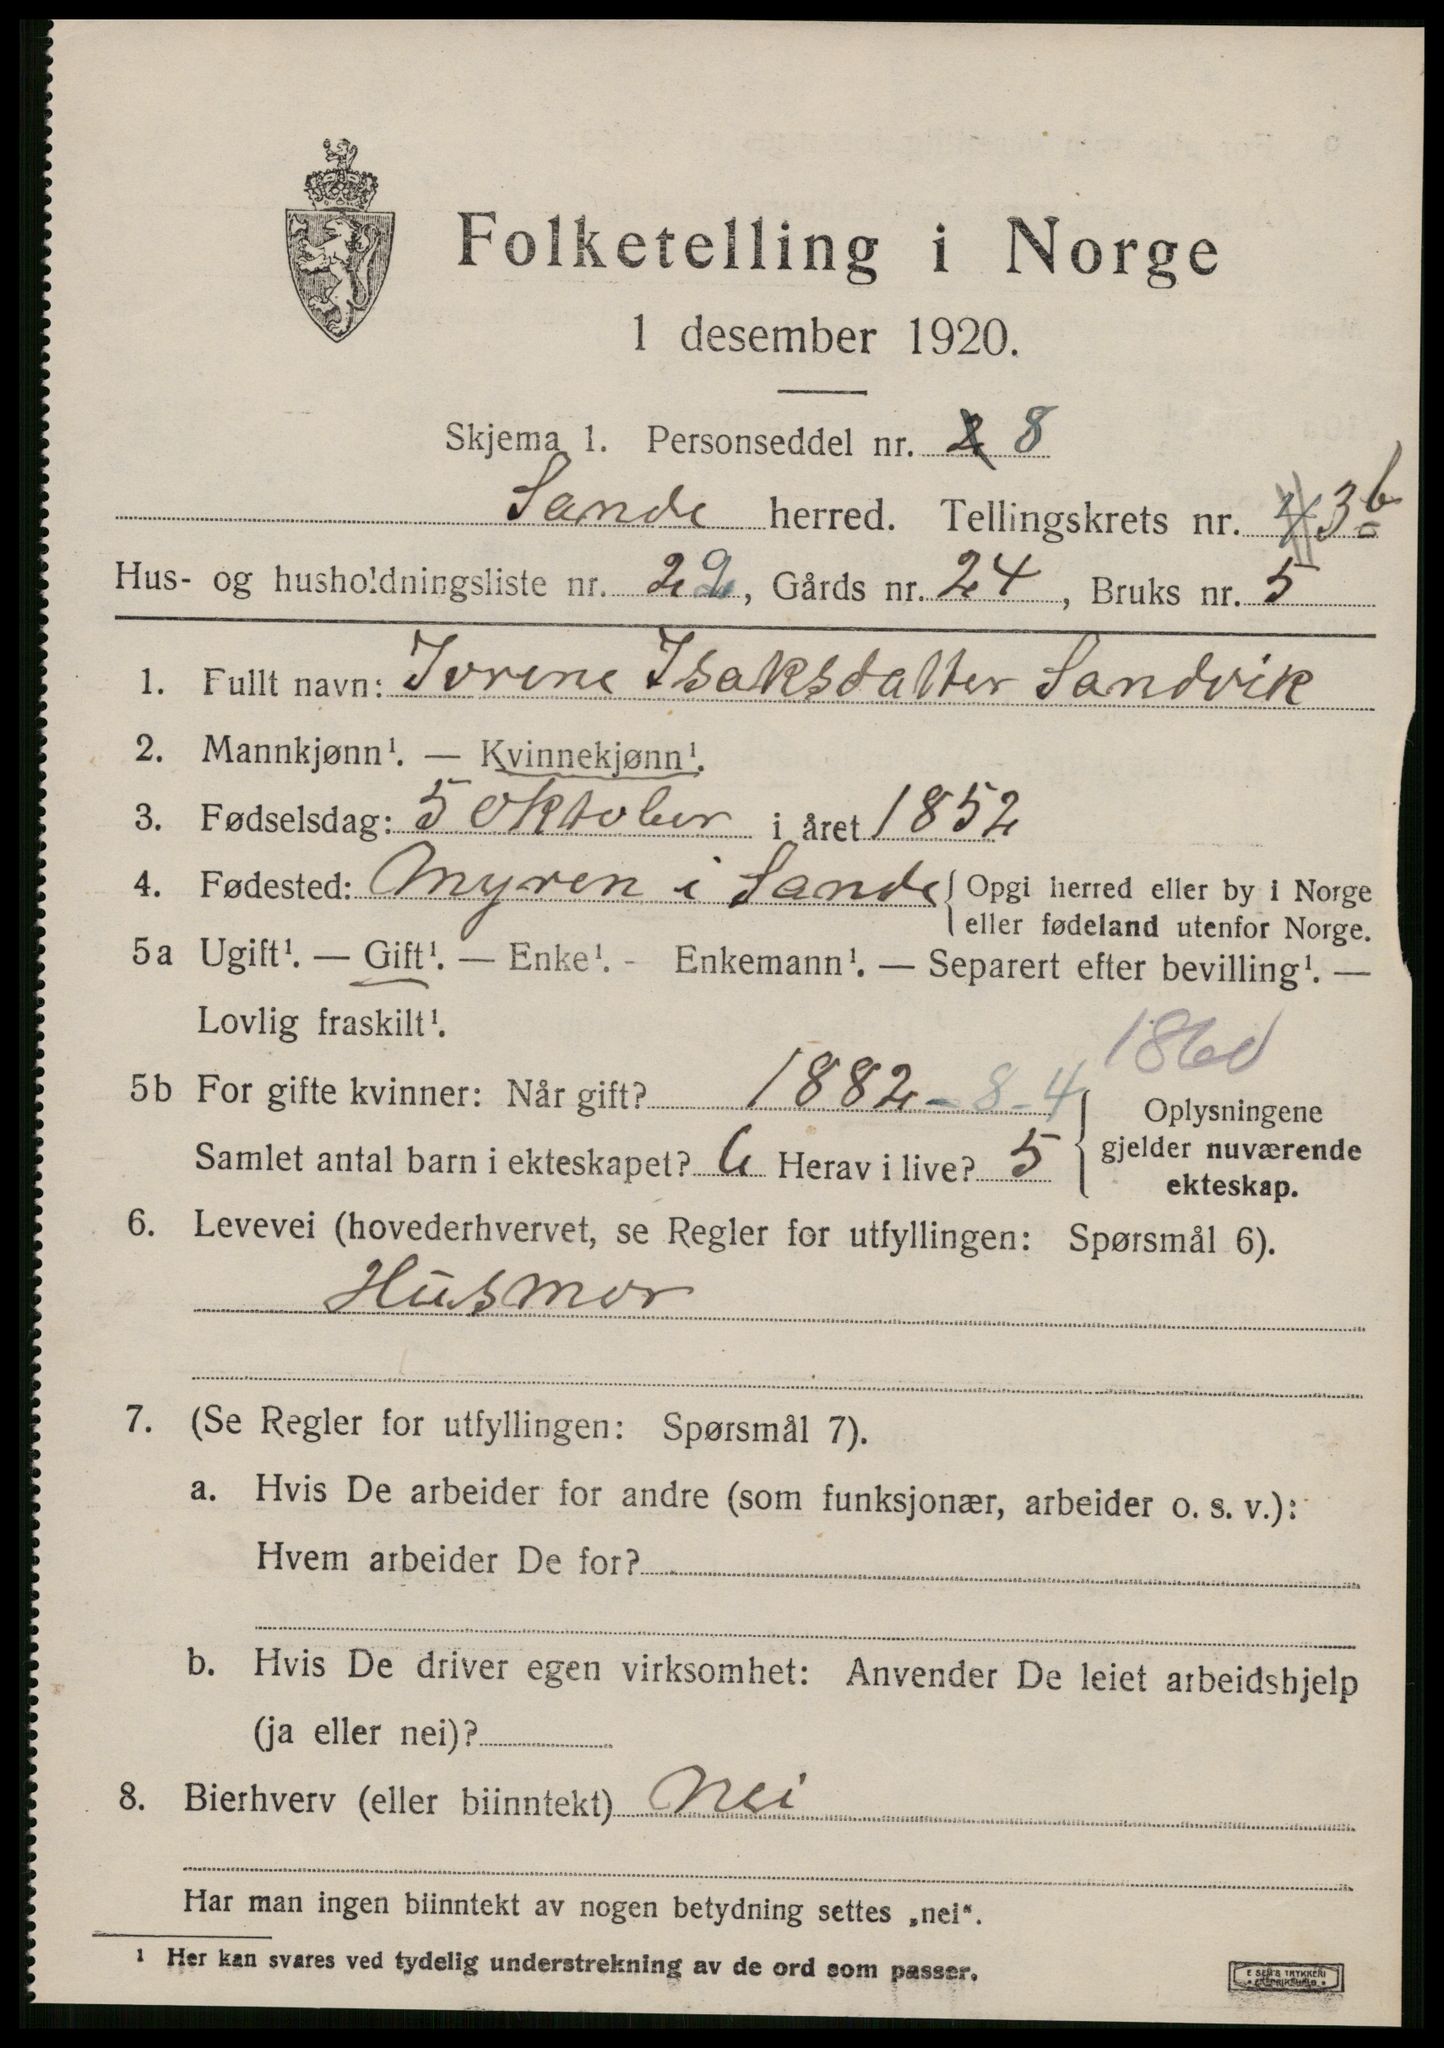 Folketelling i Norge
1 desember 1920.
Skjema 1. Personseddel nr. 2 8
Sande herred. Tellingskrets nr. 4 3b
Hus- og husholdningsliste nr. 22, Gårds nr. 24, Bruks nr. 5
1. Fullt navn: Ivrine Isaksdatter Sandvik
2. Mannkjønn¹. — Kvinnekjønn¹.
3. Fødselsdag: 5 Oktober i året 1852
4. Fødested: Myren i Sande { Opgi herred eller by i Norge
eller fødeland utenfor Norge.
5a Ugift¹. — Gift¹. — Enke¹. - Enkemann¹. — Separert efter bevilling¹. —
Lovlig fraskilt¹.
1860
5b For gifte kvinner: Når gift? 1882 - 8 - 4 { Oplysningene
gjelder nuværende
Samlet antal barn i ekteskapet? 6 Herav i live? 5
ekteskap.
6. Levevei (hovederhvervet, se Regler for utfyllingen: Spørsmål 6).
Husmor
7. (Se Regler for utfyllingen: Spørsmål 7).
a. Hvis De arbeider for andre (som funksjonær, arbeider o. s. v.):
Hvem arbeider De for?
b. Hvis De driver egen virksomhet: Anvender De leiet arbeidshjelp
(ja eller nei)?
8. Bierhverv (eller biinntekt) Nei
Har man ingen biinntekt av nogen betydning settes „nei“.
¹ Her kan svares ved tydelig understrekning av de ord som passer.
E SEM'S TRYKKERI
FREDRIKSHALD